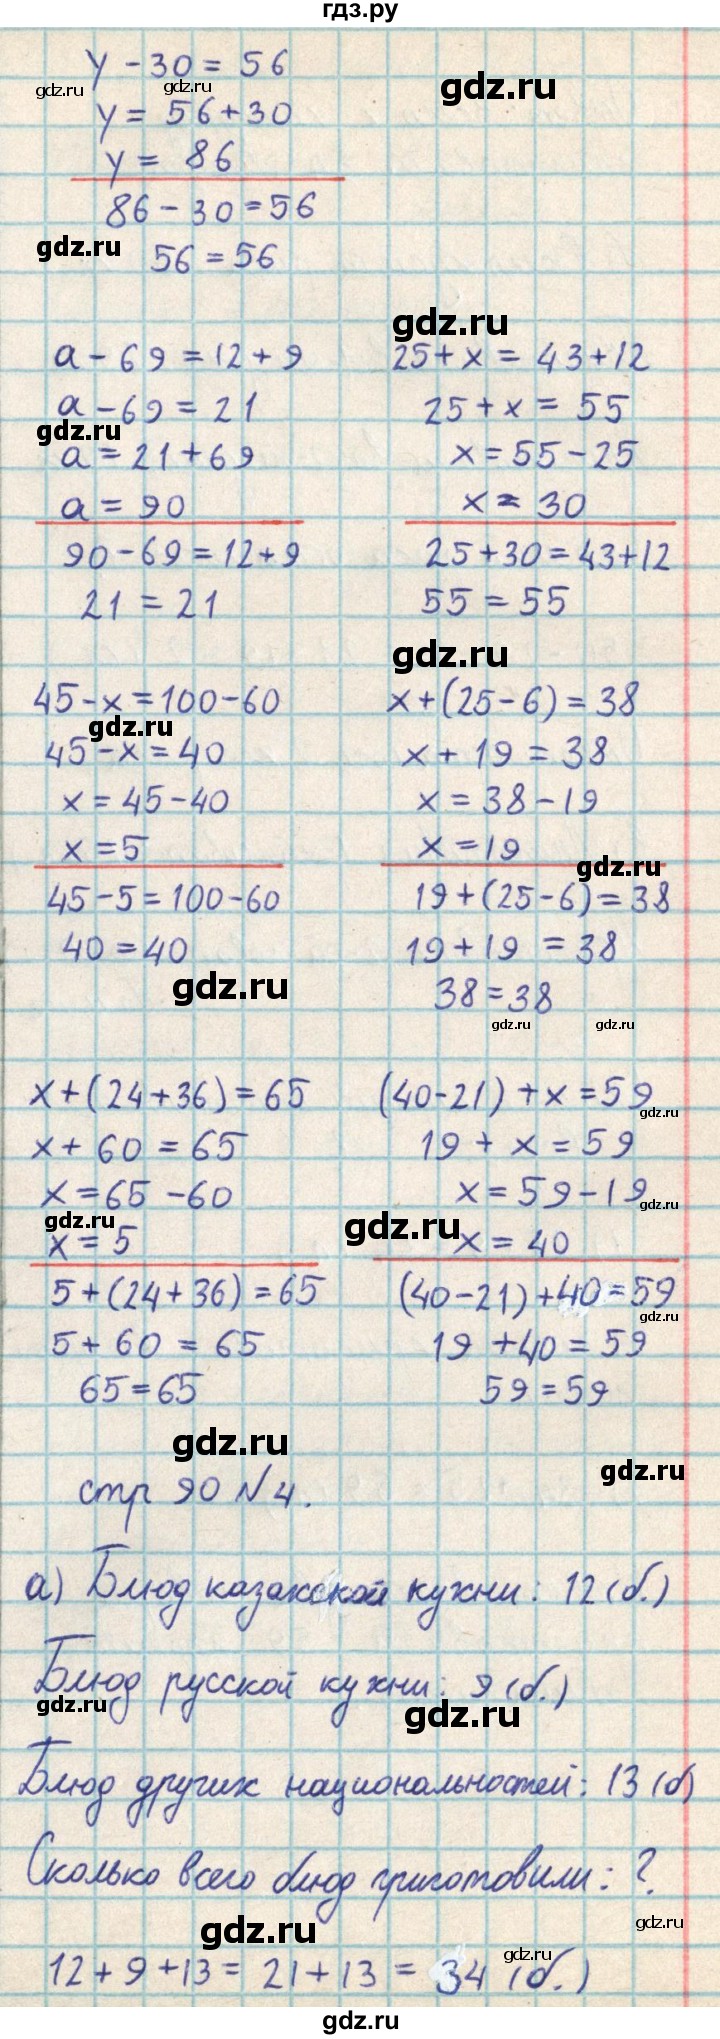 гдз.ру
y - 30 = 56
gdz.ru gdz.ru gdz.ru
y = 56 + 30
y = 86
86 - 30 = 56
gdz.ru
56 = 56
gdz.ru
a - 69 = 12 + 9
a - 69 = 21
gdz.ru
a = 21 + 69
a = 90
90 - 69 = 12 + 9
21 = 21
25 + x = 43 + 12
25 + x = 55
x = 55 - 25
x = 30
25 + 30 = 43 + 12
55 = 55
gdz.ru
45 - x = 100 - 60
gdz.ru
45 - x = 40
x = 45 - 40
x = 5
45 - 5 = 100 - 60
40 = 40
gdz.ru
x + (25 - 6) = 38
x + 19 = 38
x = 38 - 19
x = 19
gdz.ru
19 + (25 - 6) = 38
19 + 19 = 38
38 = 38
gdz.ru gdz.ru
x + (24 + 36) = 65
x + 60 = 65
x = 65 - 60
gdz.ru
x = 5
5 + (24 + 36) = 65
5 + 60 = 65
65 = 65
(40 - 21) + x = 59
gdz.ru
19 + x = 59
x = 59 - 19
gdz.ru
gdz.ru
x = 40
(40 - 21) + 40 = 59
gdz.ru
19 + 40 = 59
59 = 59
gdz.ru
gdz.ru
стр 90 N 4.
а) Блюд казахской кухни: 12 (б.)
Блюд русской кухни: 9 (б.)
gdz.ru gdz.ru
Блюд других национальностей: 13 (б)
Сколько всего блюд приготовили: ?
gdz.ru gdz.ru
12 + 9 + 13 = 21 + 13 = 34 (б.)
gdz.ru
gdz.ru